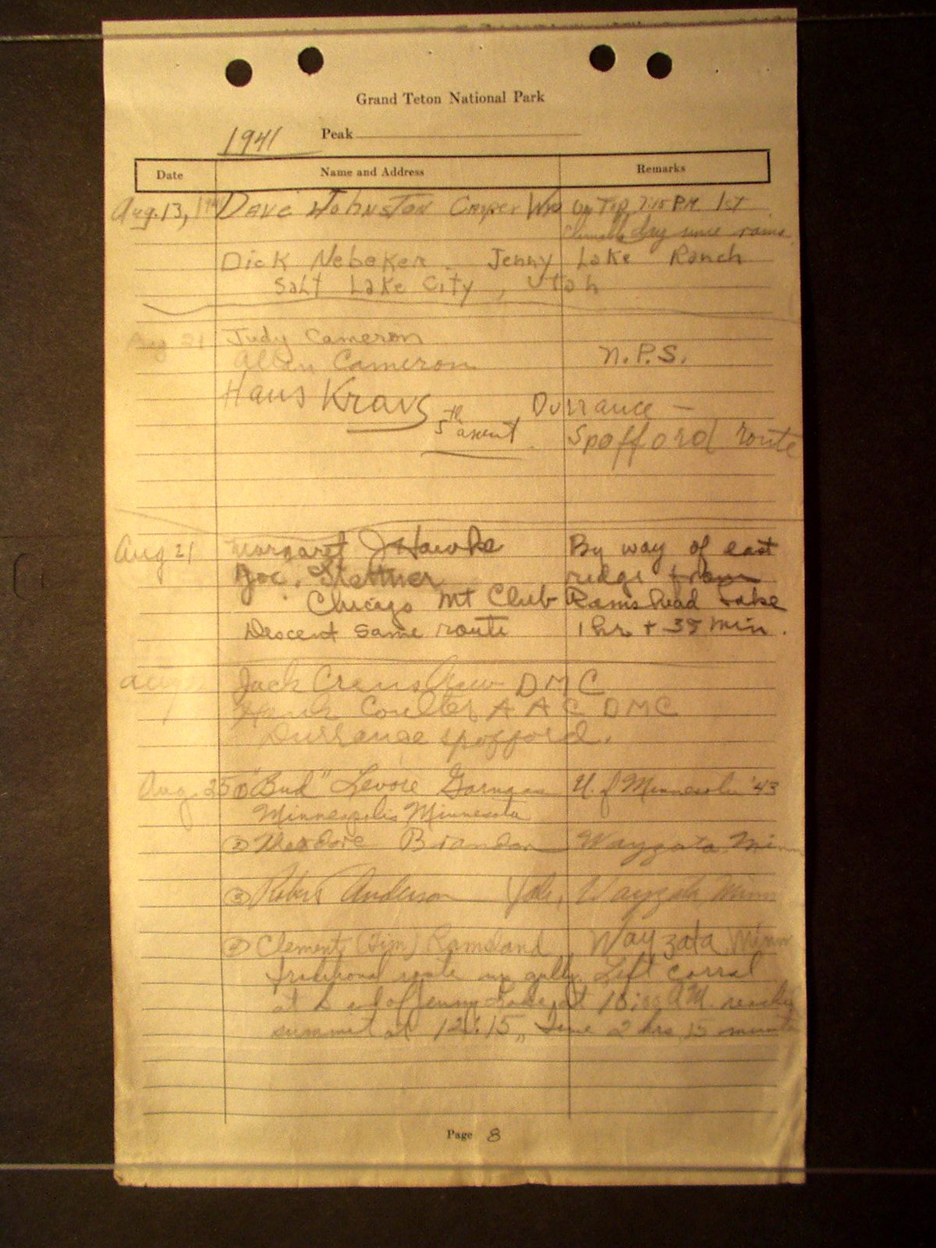 Grand Teton National Park
1941 Peak
Date Name and Address Remarks
Aug. 13, Dave Johnston Casper Wyo On Top 7:15 PM 1st
dry since rains
Dick Nebeker. Jenny Lake Ranch
Salt Lake City, Utah
Aug 21 Judy Cameron
Allan Cameron N.P.S.
Hans Kraus
5th ascent. Durrance -
Spofford route
Aug 21 Margaret J Hawke By way of east
Joe. Stettner ridge from
Chicago Mt Club Ramshead Lake
Descent same route 1 hr + 35 min.
Aug Jack Crenshaw DMC
Henry Coulter AAC DMC
Durrance Spofford.
Aug. 25 ① "Bud" U. of Minnesota '43
Minneapolis Minnesota
② Theodore Brandon Wayzata Minn
③ Robert Anderson Yale, Wayzata Minn
④ Clement (Tim) Ramsland, Wayzata Minn
traditional route up gully. Left corral
at end of Jenny Lake at 10:00 A.M.
summit at 12:15, Time 2 hrs 15 minutes
Page 8